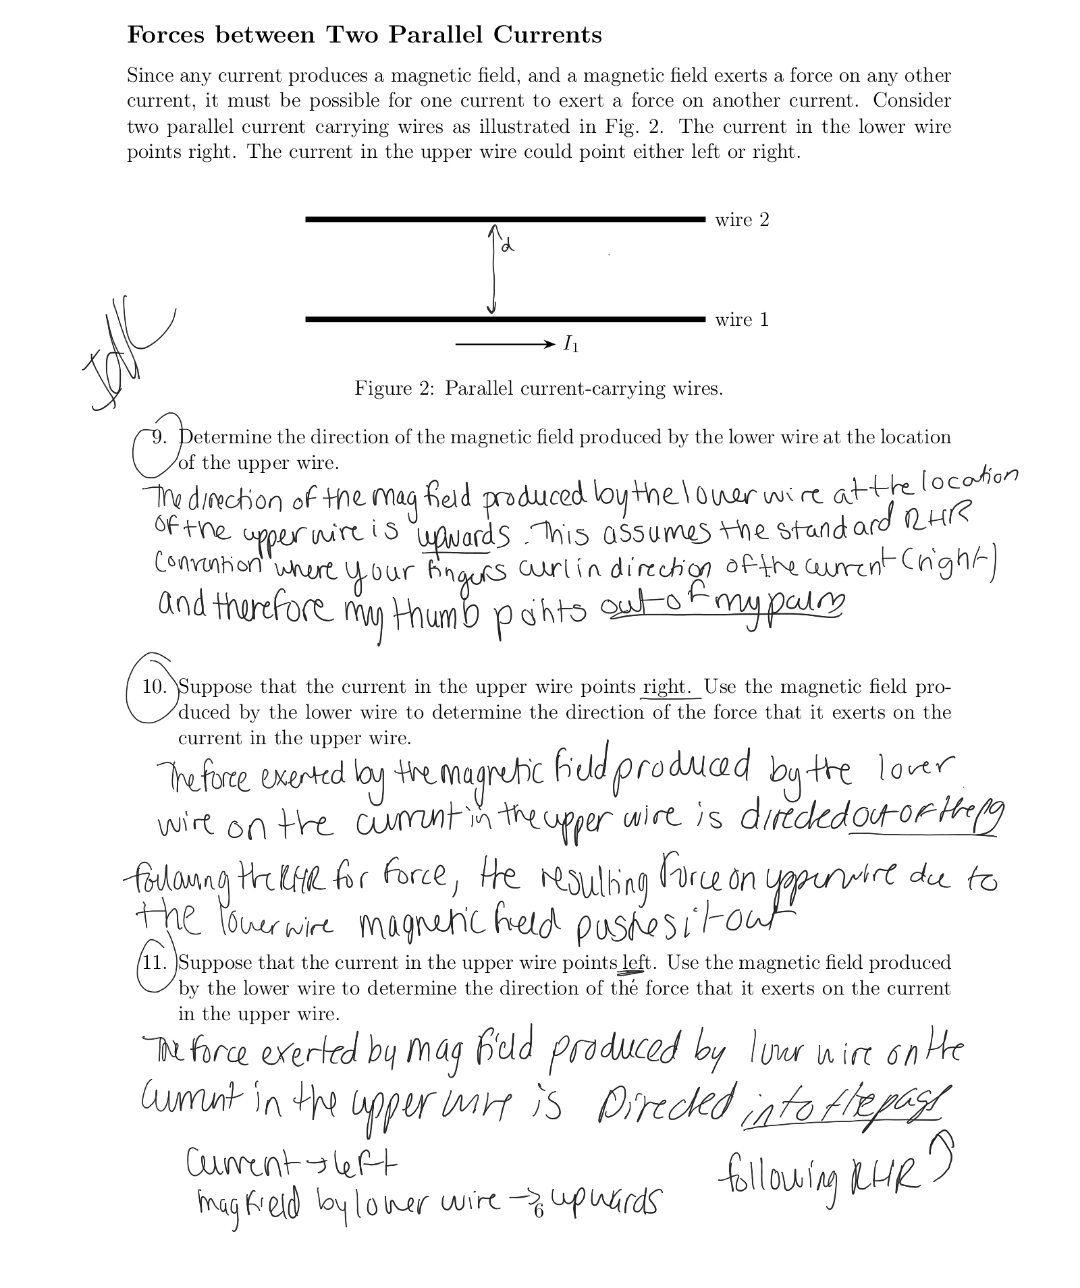 Forces between Two Parallel Currents
Since any current produces a magnetic field, and a magnetic field exerts a force on any other
current, it must be possible for one current to exert a force on another current. Consider
two parallel current carrying wires as illustrated in Fig. 2. The current in the lower wire
points right. The current in the upper wire could point either left or right.
wire 2
d
wire 1
I₁
Idk
Figure 2: Parallel current-carrying wires.
9. Determine the direction of the magnetic field produced by the lower wire at the location
of the upper wire.
The direction of the mag field produced by the lower wire at the location
of the upper wire is upwards. This assumes the standard RHR
convention where your fingers curl in direction of the current (right)
and therefore my thumb points out of my palm
10. Suppose that the current in the upper wire points right. Use the magnetic field pro-
duced by the lower wire to determine the direction of the force that it exerts on the
current in the upper wire.
The force exerted by the magnetic field produced by the lower
wire on the current in the upper wire is directed out of the pg
following the RHR for force, the resulting force on upper wire due to
the lower wire magnetic field pushes it out
11. Suppose that the current in the upper wire points left. Use the magnetic field produced
by the lower wire to determine the direction of the force that it exerts on the current
in the upper wire.
The force exerted by mag field produced by lower wire on the
current in the upper wire is Directed into the page
Current → left
following RHR
mag field by lower wire → upwards
6